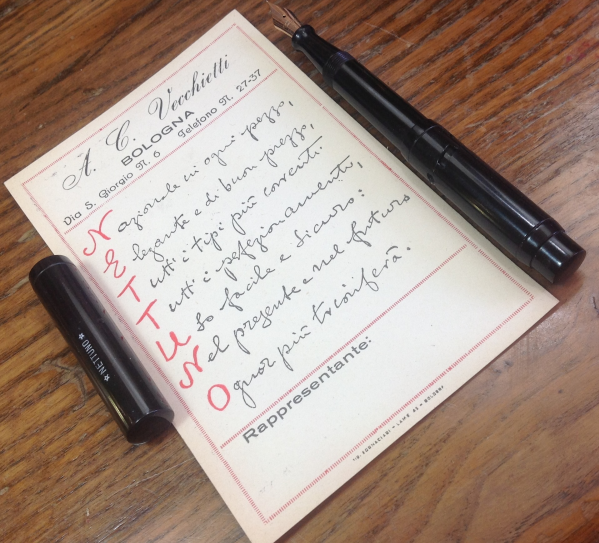 A. C. Vecchietti
BOLOGNA
Via S. Giorgio N. 6 Telefono N. 27-37
Nazionale in ogni pezzo,
Elegante e di buon prezzo,
Tutti i tipi più correnti.
Tutti i pefezionamenti,
Uso facile e sicuro:
Nel presente e nel futuro
Ognor più trionferà.
Rappresentante:
FORNACIARI - LAME 43 - BOLOGNA
★ NETTUNO ★